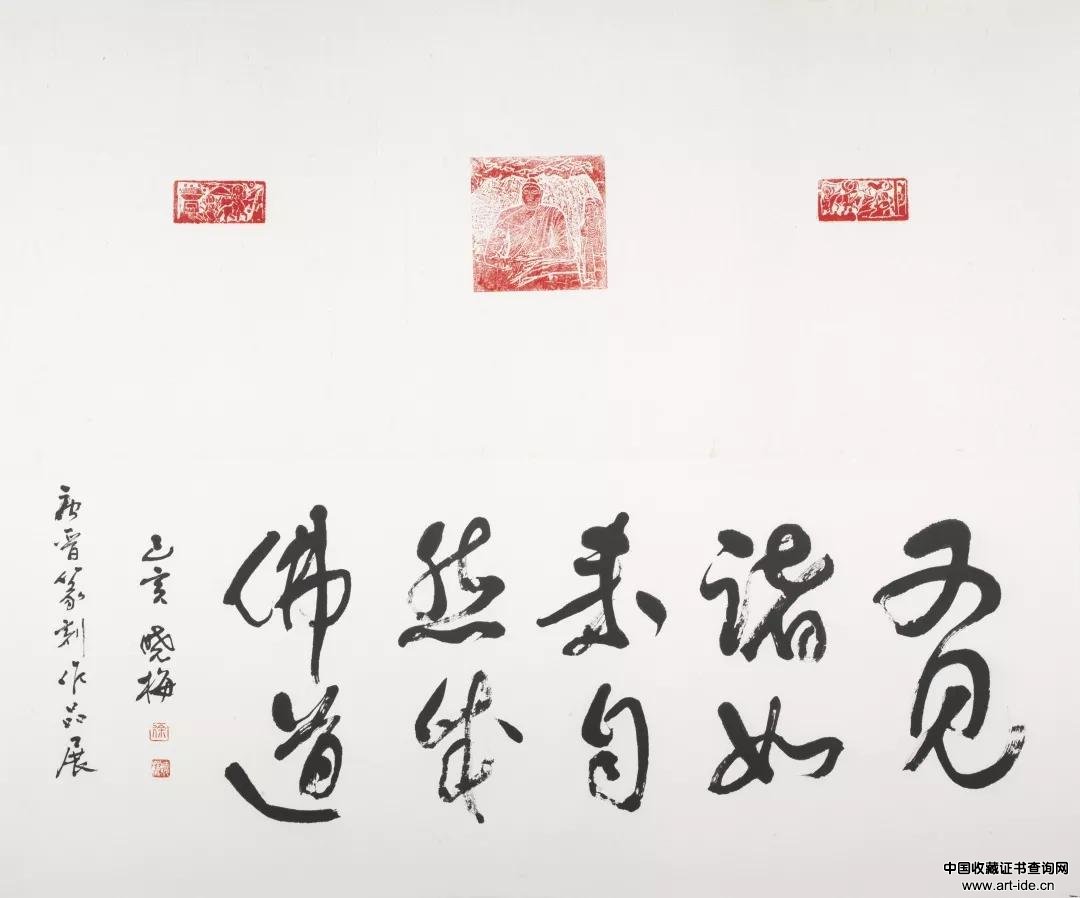 又见
諸如
来自
然成
佛道
己亥 晓梅
晋篆刻作品展
中国收藏证书查询网
www.art-ide.cn